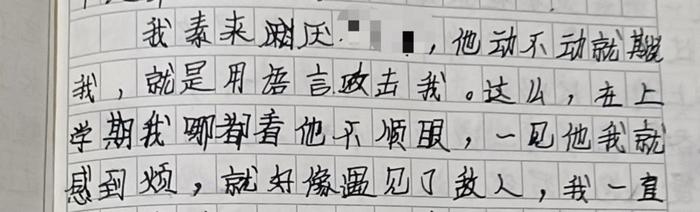 我素来讨厌，他动不动就
我，就是用语言攻击我。这么，在上
学期我哪都看他不顺眼，一见他我就
感到烦，就好像遇见了敌人，我一直